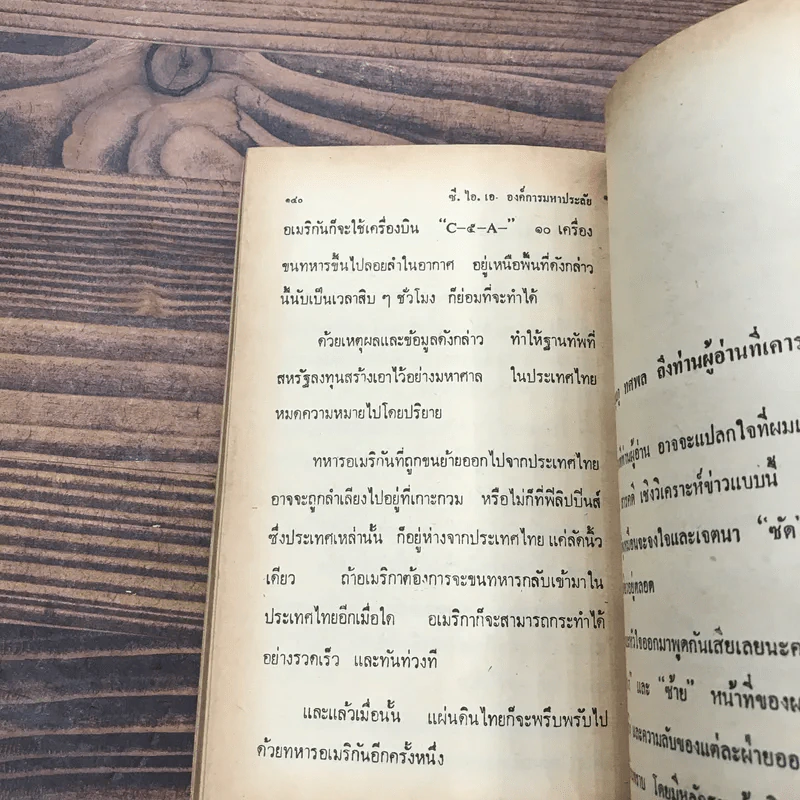 ๑๔๐ ซี. ไอ. เอ. องค์การมหาประลัย
อเมริกันก็จะใช้เครื่องบิน “C–๕–A–” ๑๐ เครื่อง
ขนทหารขึ้นไปลอยลำในอากาศ อยู่เหนือพื้นที่ดังกล่าว
นี้นับเป็นเวลาสิบ ๆ ชั่วโมง ก็ย่อมที่จะทำได้
ด้วยเหตุผลและข้อมูลดังกล่าว ทำให้ฐานทัพที่
สหรัฐลงทุนสร้างเอาไว้อย่างมหาศาล ในประเทศไทย
หมดความหมายไปโดยปริยาย
ทหารอเมริกันที่ถูกขนย้ายออกไปจากประเทศไทย
อาจจะถูกลำเลียงไปอยู่ที่เกาะกวม หรือไม่ก็ที่ฟิลิปปีนส์
ซึ่งประเทศเหล่านั้น ก็อยู่ห่างจากประเทศไทย แค่ลัดนิ้ว
เดียว ถ้าอเมริกาต้องการจะขนทหารกลับเข้ามาใน
ประเทศไทยอีกเมื่อใด อเมริกาก็จะสามารถกระทำได้
อย่างรวดเร็ว และทันท่วงที
และแล้วเมื่อนั้น แผ่นดินไทยก็จะพรึบพรับไป
ด้วยทหารอเมริกันอีกครั้งหนึ่ง
ทศพล ถึงท่านผู้อ่านที่เคาร
ท่านผู้อ่าน อาจจะแปลกใจที่ผมเ
เชิงวิเคราะห์ข่าวแบบนี้
จะจงใจและเจตนา “ซัด”
อยู่ตลอด
ออกมาพูดกันเสียเลยนะค
และ “ซ้าย” หน้าที่ของผ
และความลับของแต่ละฝ่ายออ
โดยมี